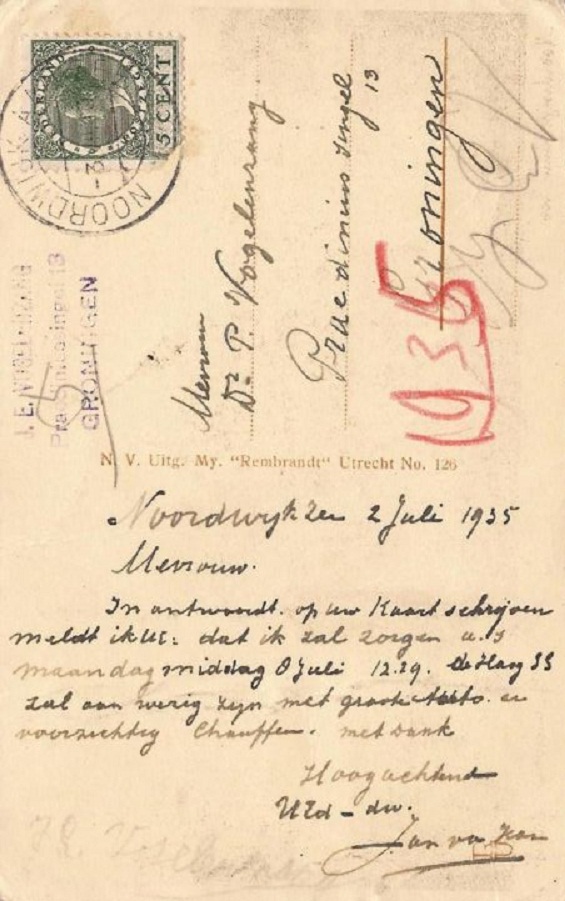 NEDERLAND
5 CENT
NOORDWIJK A
J. E. VOGELENZANG
Praediniussingel 13
GRONINGEN
Mevrouw
Dr P. Vogelenzang
Praedinius singel
13
Groningen
1935
N. V. Uitg. My. "Rembrandt" Utrecht No. 126
Noordwijk Zee 2 Juli 1935
Mevrouw.
In antwoordt. op uw Kaart schrijven
meldt ik U: dat ik zal zorgen a.s
maandag middag 8 Juli 12.29. de Haag SS
zal aan wezig zijn met groote Auto. en
voorzichtig Chauffeu. met dank
Hoogachtend
UEd - dw.
Jan va